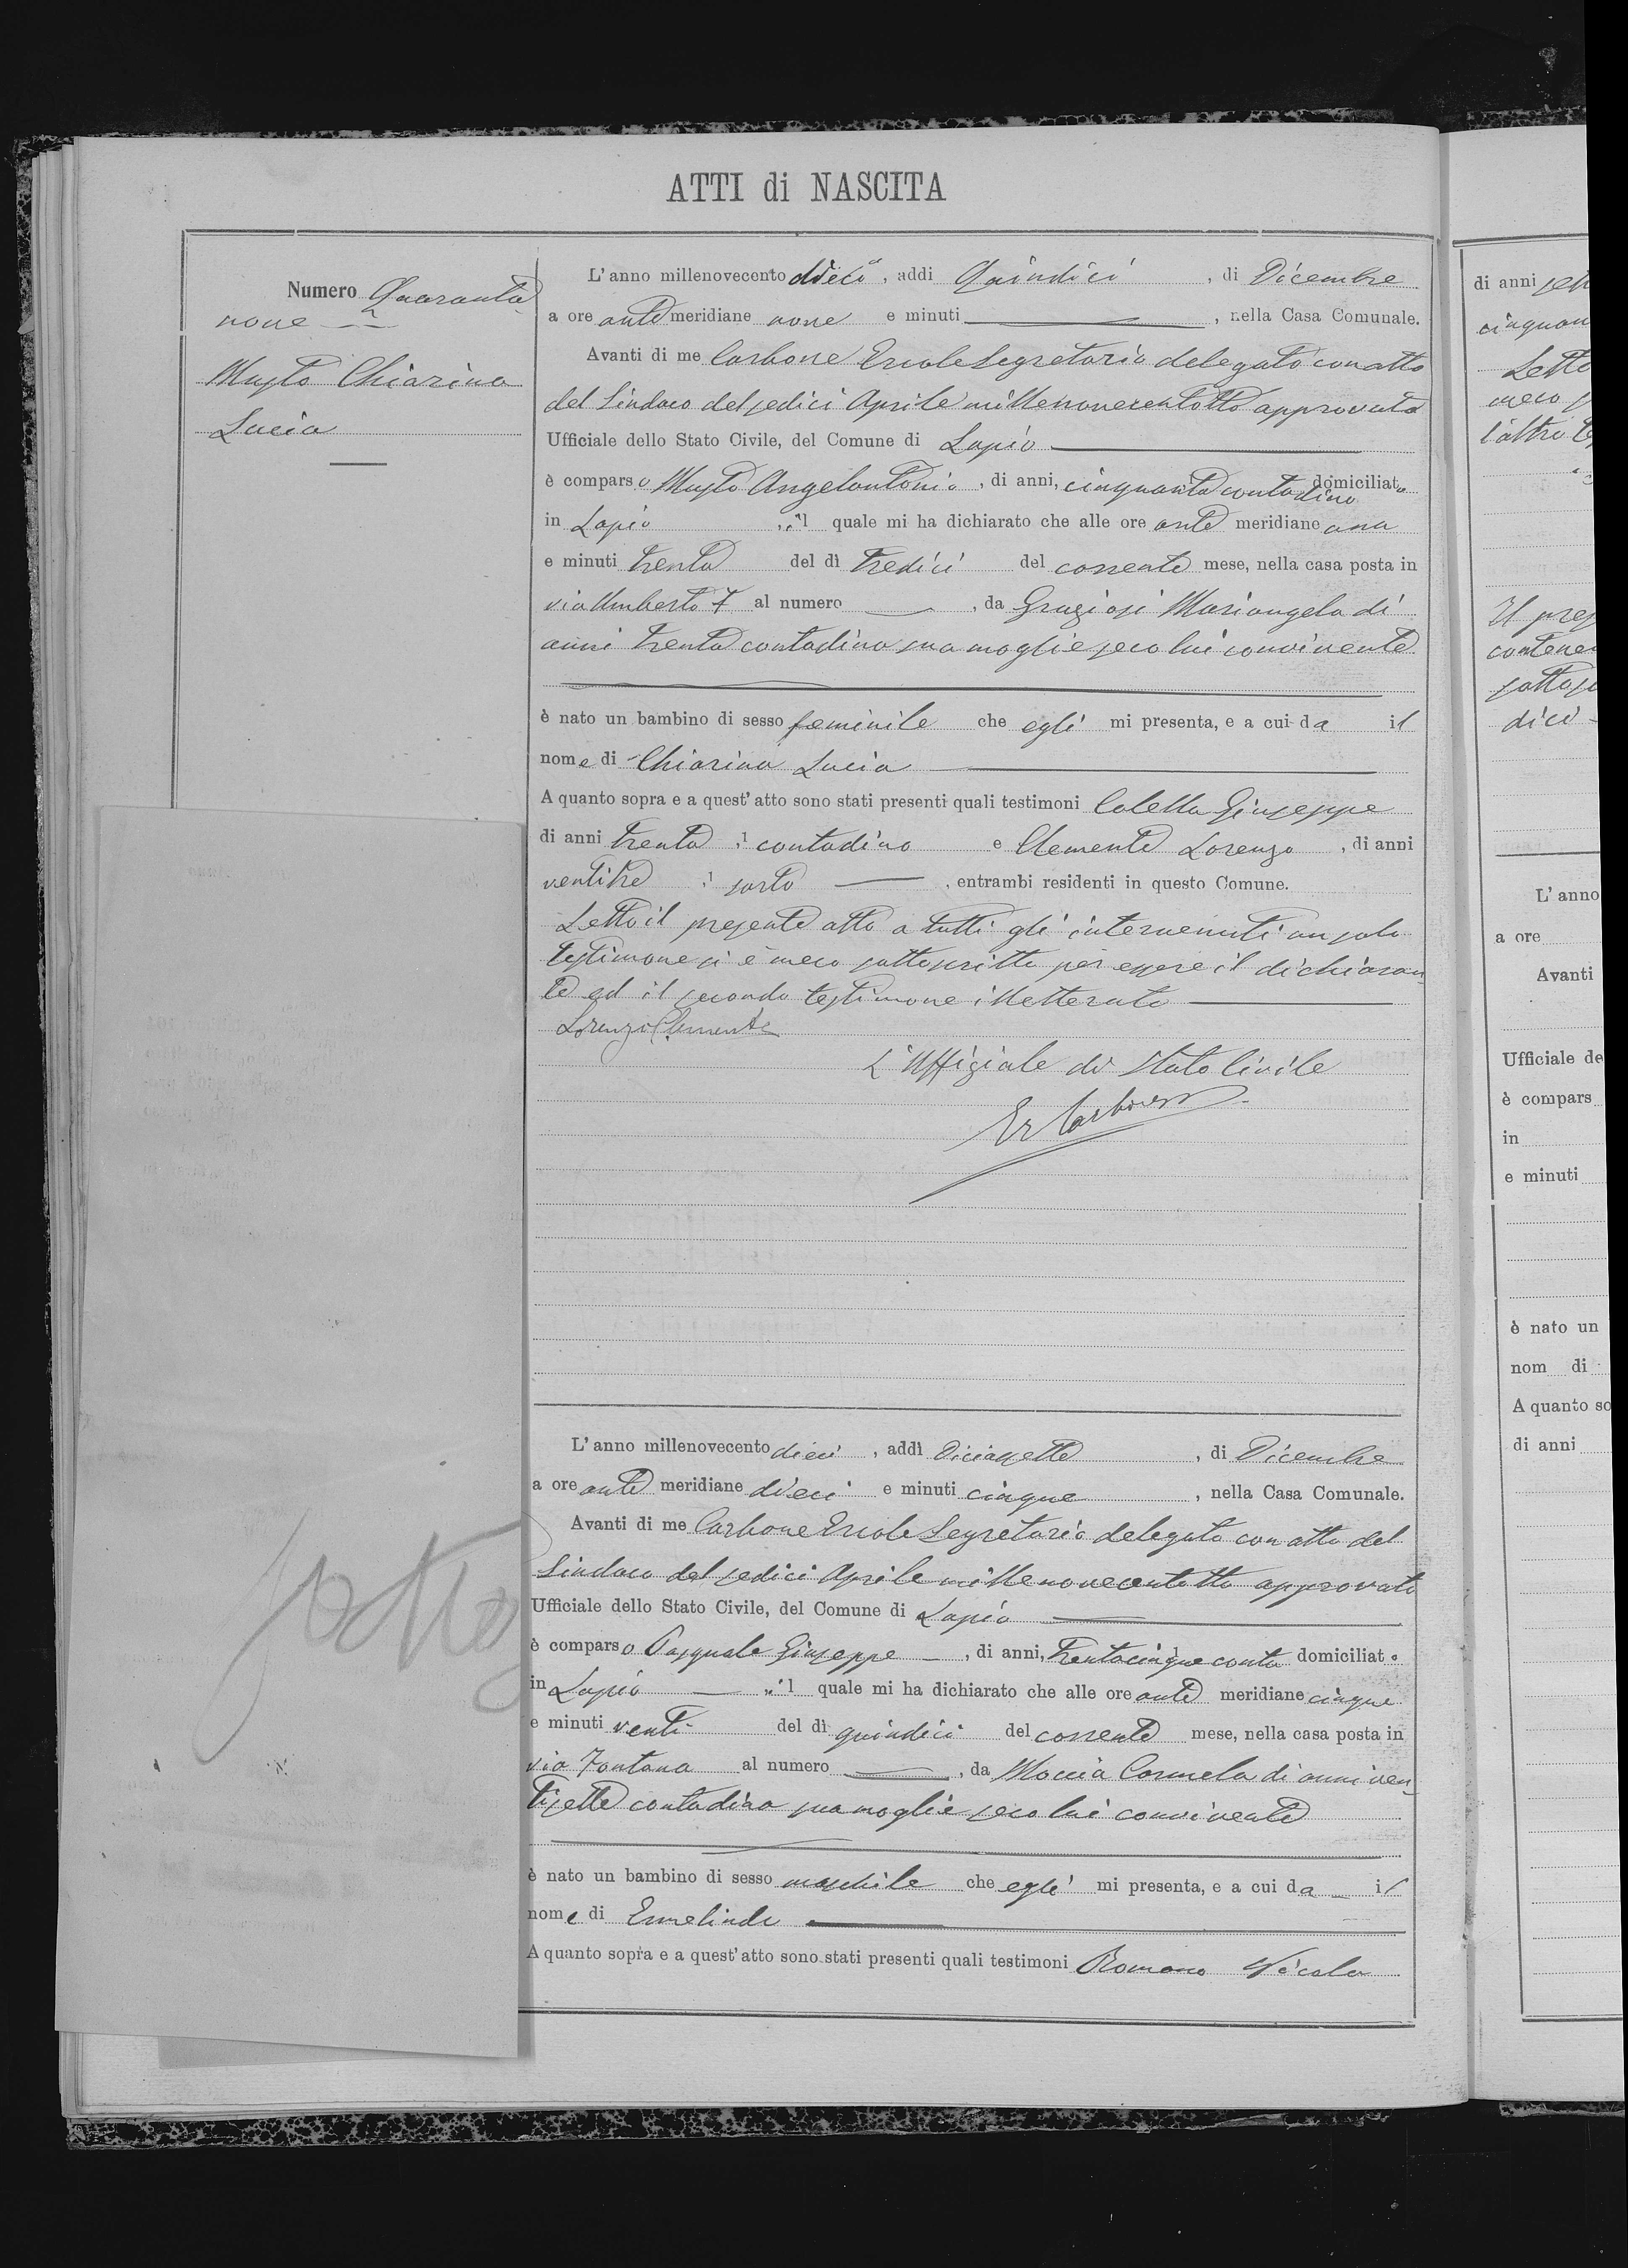 ATTI di NASCITA
Numero Quaranta
nove
Musto Chiarina
Lucia
L'anno millenovecento dieci, addi Quindici, di Dicembre
a ore ante meridiane nove e minuti, nella Casa Comunale.
Avanti di me Carbone Ercole Segretario delegato con atto
del Sindaco del sedici Aprile millenovecentotto approvato
Ufficiale dello Stato Civile, del Comune di Lapio
è comparso Musto Angelantonio, di anni, cinquanta contadino domiciliato
in Lapio, il quale mi ha dichiarato che alle ore ante meridiane una
e minuti trenta del dì tredici del corrente mese, nella casa posta in
via Umberto I al numero, da Graziosi Mariangela di
anni trenta contadina sua moglie seco lui convivente
è nato un bambino di sesso feminile che egli mi presenta, e a cui da il
nome di Chiarina Lucia
A quanto sopra e a quest'atto sono stati presenti quali testimoni Colella Giuseppe
di anni trenta, contadino e Clemente Lorenzo, di anni
ventitre, sarto, entrambi residenti in questo Comune.
Letto il presente atto a tutti gli intervenuti un solo
testimone si è meco sottoscritto per essere il dichiaran
te ed il secondo testimone illetterato
Lorenzo Clemente
L'Uffiziale di Stato Civile
Er Carbone
L'anno millenovecento dieci, addì Diciassette, di Dicembre
a ore ante meridiane dieci e minuti cinque, nella Casa Comunale.
Avanti di me Carbone Ercole Segretario delegato con atto del
Sindaco del sedici Aprile millenovecentotto approvato
Ufficiale dello Stato Civile, del Comune di Lapio
è comparso Pasquale Giuseppe, di anni, trentacinque conta domiciliato
in Lapio, il quale mi ha dichiarato che alle ore ante meridiane cinque
e minuti venti del dì quindici del corrente mese, nella casa posta in
via Fontana al numero, da Moccia Carmela di anni ven
tisette contadina sua moglie seco lui convivente
è nato un bambino di sesso maschile che egli mi presenta, e a cui da il
nome di Ermelindo
A quanto sopra e a quest'atto sono stati presenti quali testimoni Romano Nicola
sotto
di anni
cinquan
Letto
meco
l'altro
Il pres
contene
sottos
dici
L'anno
a ore
Avanti
Ufficiale de
è compars
in
e minuti
è nato un
nom di
A quanto so
di anni